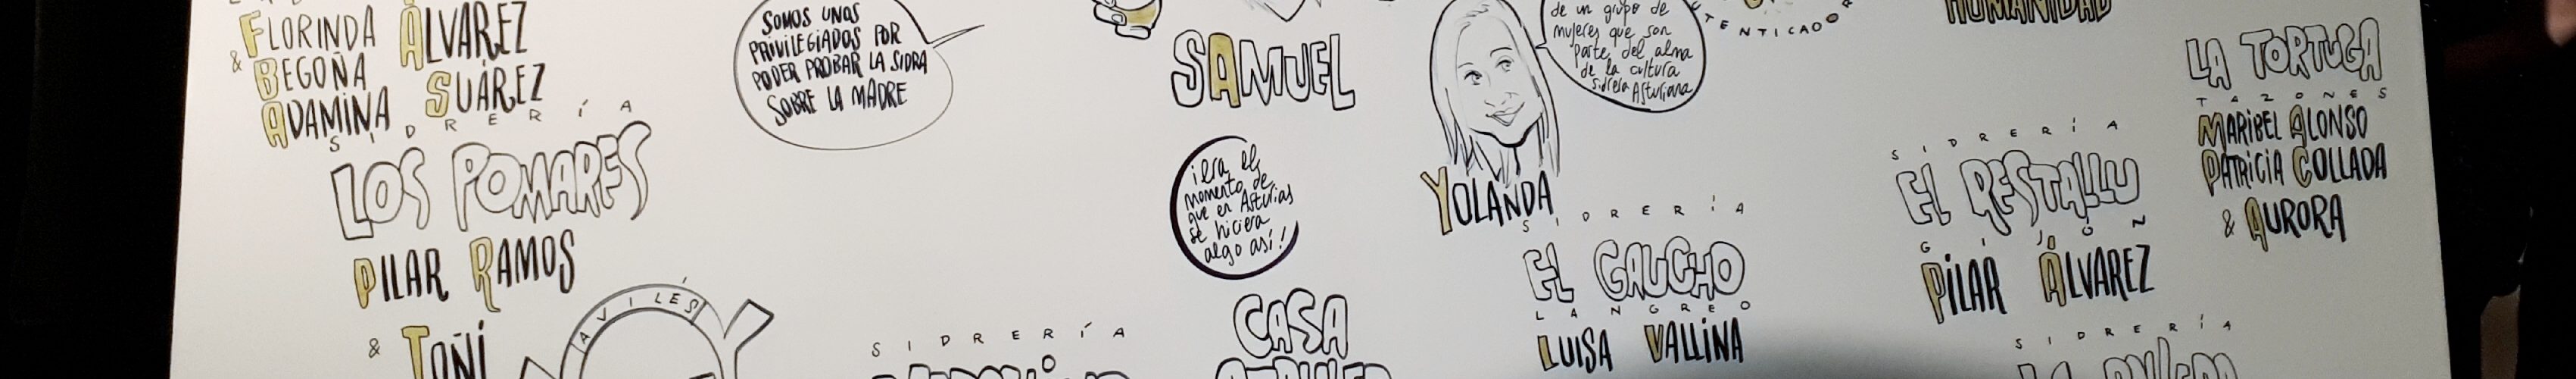 FLORINDA ÁLVAREZ
& BEGOÑA
ADAMINA SUÁREZ
SIDRERÍA
LOS POMARES
PILAR RAMOS
& TOÑI
AVILÉS
SOMOS UNOS
PRIVILEGIADOS POR
PODER PROBAR LA SIDRA
SOBRE LA MADRE
SIDRERÍA
SAMUEL
¡era el
momento de
que en Asturias
se hiciera
algo así!
CASA
de un grupo de
mujeres que son
parte del alma
de la cultura
sidrera Asturiana
YOLANDA
SIDRERÍA
EL GAUCHO
LANGREO
LUISA VALLINA
TENTICADOR
HUMANIDAD
SIDRERÍA
EL RESTALLU
GIJÓN
PILAR ÁLVAREZ
SIDRERÍA
LA TORTUGA
TAZONES
MARIBEL ALONSO
PATRICIA COLLADA
& AURORA